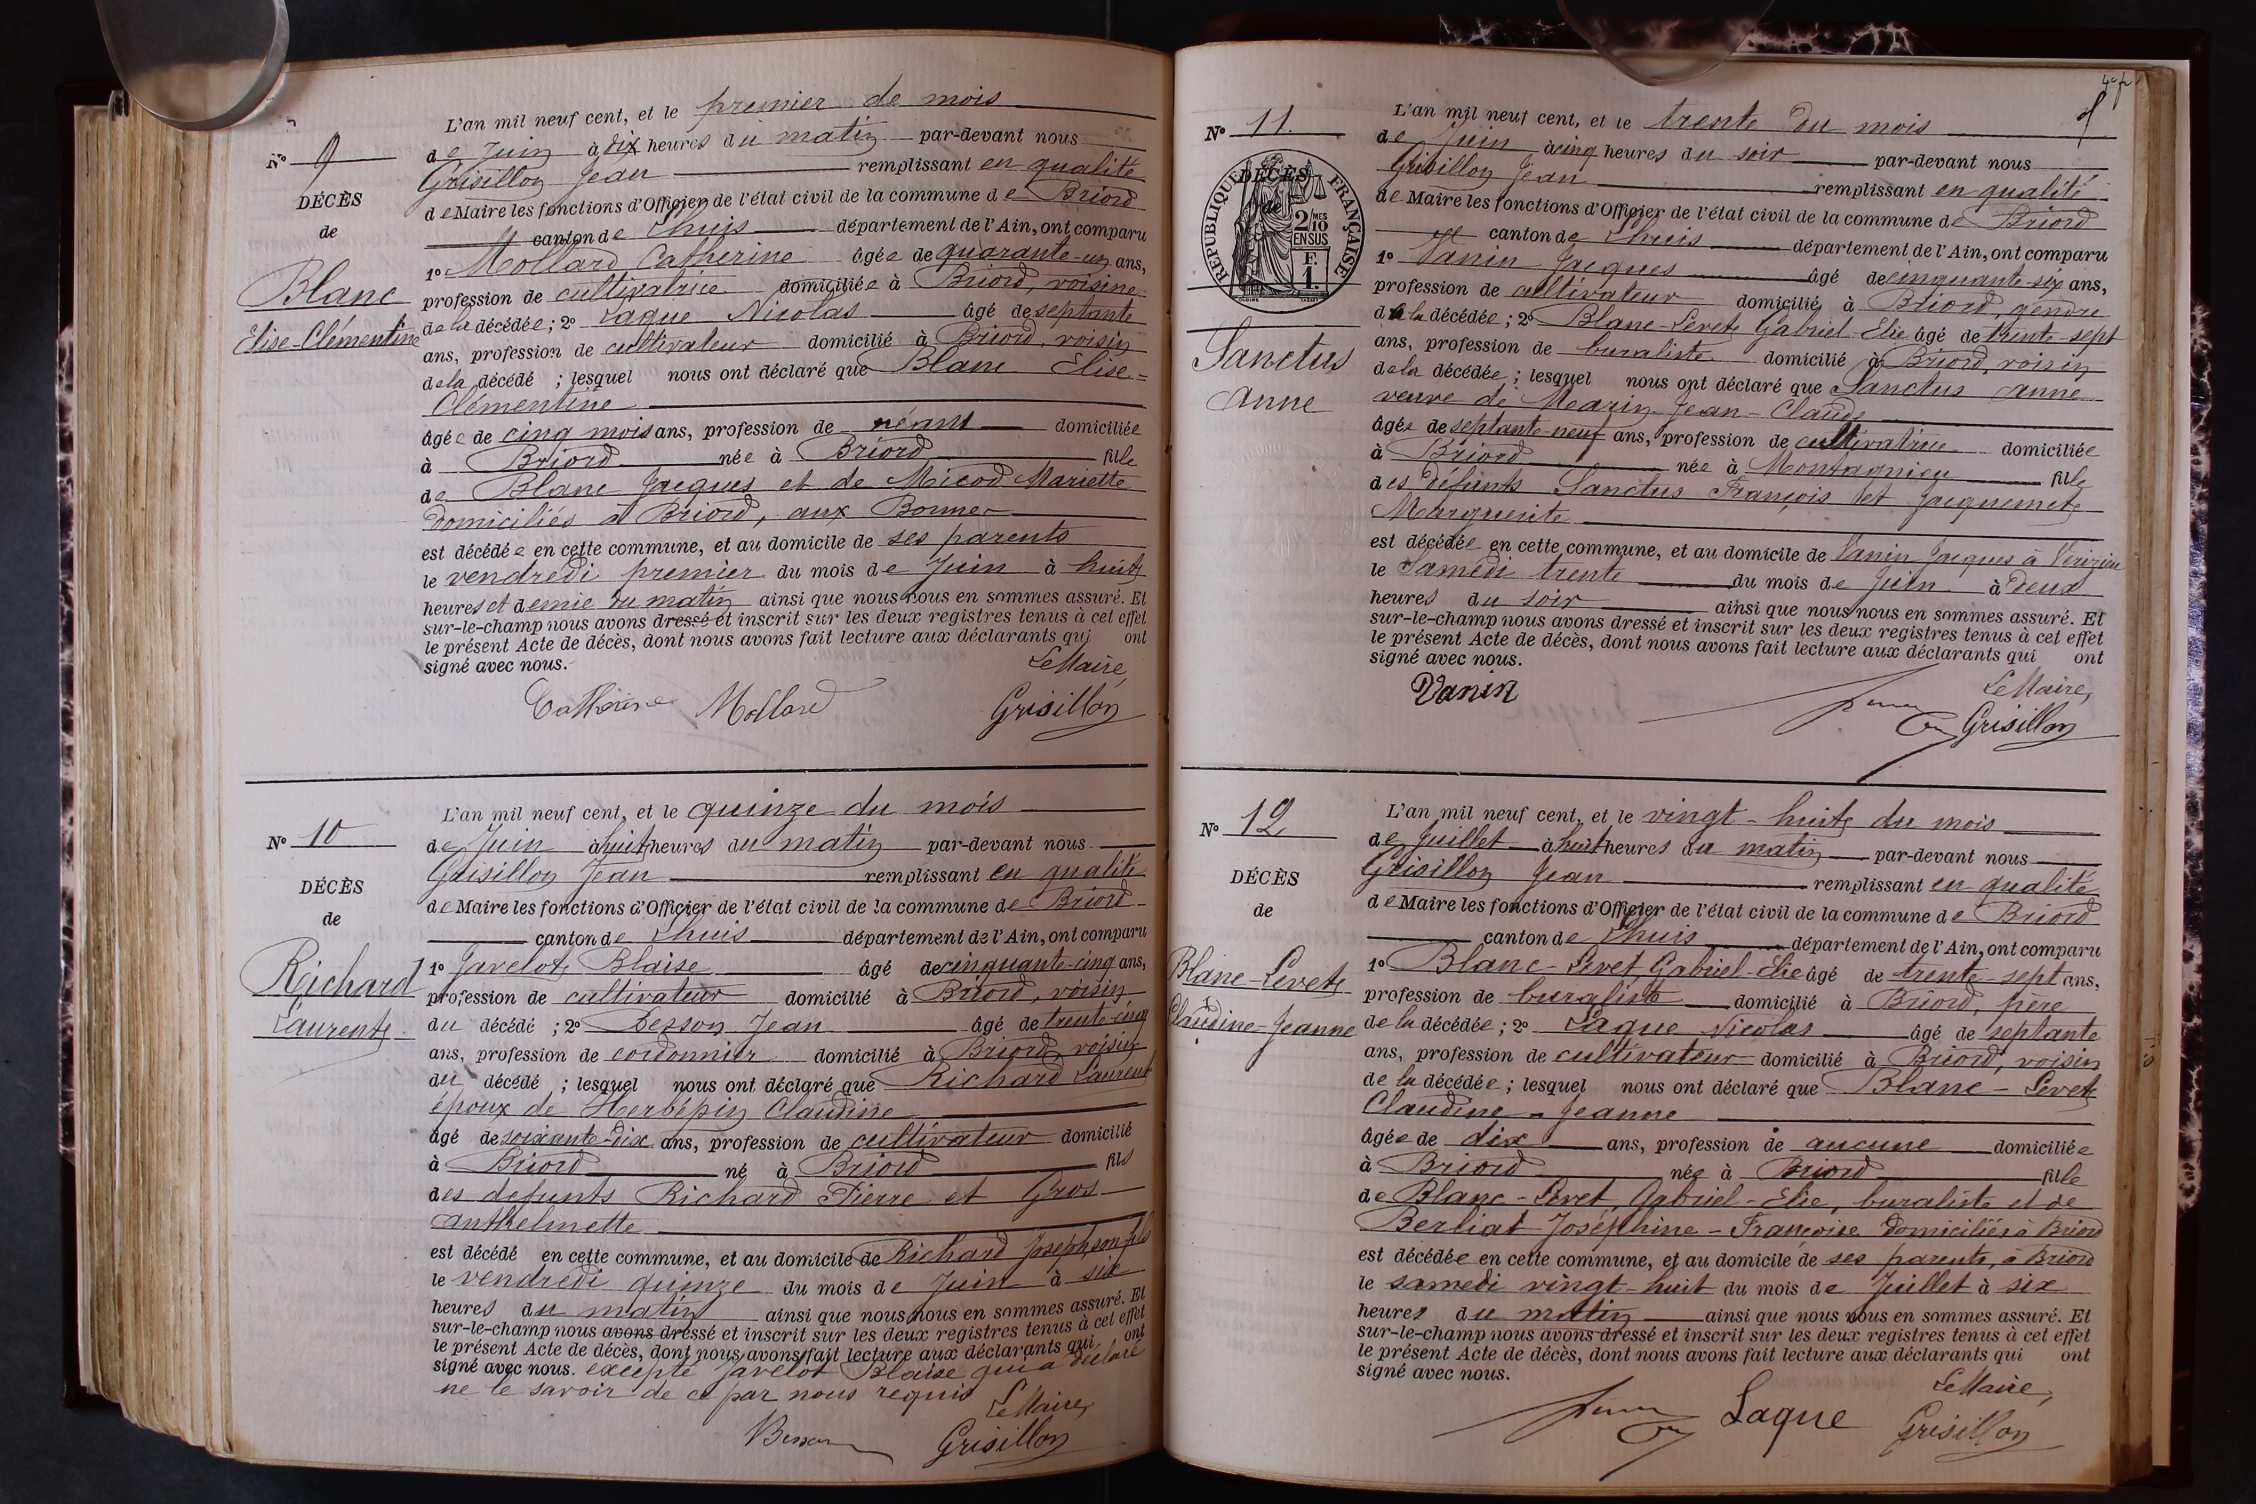 N° 9
DÉCÈS
de
Blanc
Elise-Clémentine
L'an mil neuf cent, et le premier de mois
de Juin à dix heures du matin par-devant nous
Grisillon Jean remplissant en qualité
de Maire les fonctions d'Officier de l'état civil de la commune de Briord
canton de Lhuis département de l'Ain, ont comparu
1° Mollard Catherine âgée de quarante-un ans,
profession de cultivatrice domiciliée à Briord, voisine
de la décédée ; 2° Laque Nicolas âgé de septante
ans, profession de cultivateur domicilié à Briord, voisin
de la décédé ; lesquel nous ont déclaré que Blanc Elise=
Clémentine
âgée de cinq mois ans, profession de néant domiciliée
à Briord née à Briord fille
de Blanc Jacques et de Micod Mariette
domiciliés à Briord, aux Bonnes
est décédée en cette commune, et au domicile de ses parents
le vendredi premier du mois de Juin à huit
heures et demie du matin ainsi que nous nous en sommes assuré. Et
sur-le-champ nous avons dressé et inscrit sur les deux registres tenus à cet effet
le présent Acte de décès, dont nous avons fait lecture aux déclarants qui ont
signé avec nous.
Le Maire,
Catherine Mollard Grisillon
N° 10
DÉCÈS
de
Richard
Laurent
L'an mil neuf cent, et le quinze du mois
de Juin à huit heures du matin par-devant nous
Grisillon Jean remplissant en qualité
de Maire les fonctions d'Officier de l'état civil de la commune de Briord
canton de Lhuis département de l'Ain, ont comparu
1° Javelot Blaise âgé de cinquante-cinq ans,
profession de cultivateur domicilié à Briord, voisin
du décédé ; 2° Besson Jean âgé de trente-cinq
ans, profession de cordonnier domicilié à Briord, voisin
du décédé ; lesquel nous ont déclaré que Richard Laurent
époux de Herbépin Claudine
âgé de soixante-dix ans, profession de cultivateur domicilié
à Briord né à Briord fils
des defunts Richard Pierre et Gros
Anthelmette
est décédé en cette commune, et au domicile de Richard Joseph son fils
le vendredi quinze du mois de Juin à six
heures du matin ainsi que nous nous en sommes assuré. Et
sur-le-champ nous avons dressé et inscrit sur les deux registres tenus à cet effet
le présent Acte de décès, dont nous avons fait lecture aux déclarants qui ont
signé avec nous. excepté Javelot Blaise qui a déclaré
ne le savoir de ce par nous requis
Le Maire,
Besson Grisillon
N° 11.
RÉPUBLIQUE FRANÇAISE
2/10 MES
EN SUS
F.
1.
DÉCÈS
de
Sanctus
Anne
L'an mil neuf cent, et le trente du mois
de Juin à cinq heures du soir par-devant nous
Grisillon Jean remplissant en qualité
de Maire les fonctions d'Officier de l'état civil de la commune de Briord
canton de Lhuis département de l'Ain, ont comparu
1° Vanin Jacques âgé de cinquante-six ans,
profession de cultivateur domicilié à Briord, gendre
de la décédée ; 2° Blanc-Levet Gabriel-Elie âgé de trente-sept
ans, profession de buraliste domicilié à Briord, voisin
de la décédée ; lesquel nous ont déclaré que Sanctus Anne
veuve de Mearin Jean-Claude
âgée de septante-neuf ans, profession de cultivatrice domiciliée
à Briord née à Montagnieu fille
des défunts Sanctus François et Jacquemet
Marguerite
est décédée en cette commune, et au domicile de Vanin Jacques à Vérizieu
le Samedi trente du mois de Juin à deux
heures du soir ainsi que nous nous en sommes assuré. Et
sur-le-champ nous avons dressé et inscrit sur les deux registres tenus à cet effet
le présent Acte de décès, dont nous avons fait lecture aux déclarants qui ont
signé avec nous.
Le Maire,
Vanin Grisillon
N° 12
DÉCÈS
de
Blanc-Levet
Claudine-Jeanne
L'an mil neuf cent, et le vingt-huit du mois
de Juillet à huit heures du matin par-devant nous
Grisillon Jean remplissant en qualité
de Maire les fonctions d'Officier de l'état civil de la commune de Briord
canton de Lhuis département de l'Ain, ont comparu
1° Blanc-Levet Gabriel-Elie âgé de trente-sept ans,
profession de buraliste domicilié à Briord, père
de la décédée ; 2° Laque Nicolas âgé de septante
ans, profession de cultivateur domicilié à Briord, voisin
de la décédée ; lesquel nous ont déclaré que Blanc-Levet
Claudine-Jeanne
âgée de dix ans, profession de aucune domiciliée
à Briord née à Briord fille
de Blanc-Levet Gabriel-Elie, buraliste et de
Berliat Joséphine-Françoise domiciliés à Briord
est décédée en cette commune, et au domicile de ses parents, à Briord
le samedi vingt-huit du mois de Juillet à six
heures du matin ainsi que nous nous en sommes assuré. Et
sur-le-champ nous avons dressé et inscrit sur les deux registres tenus à cet effet
le présent Acte de décès, dont nous avons fait lecture aux déclarants qui ont
signé avec nous.
Le Maire,
Laque Grisillon